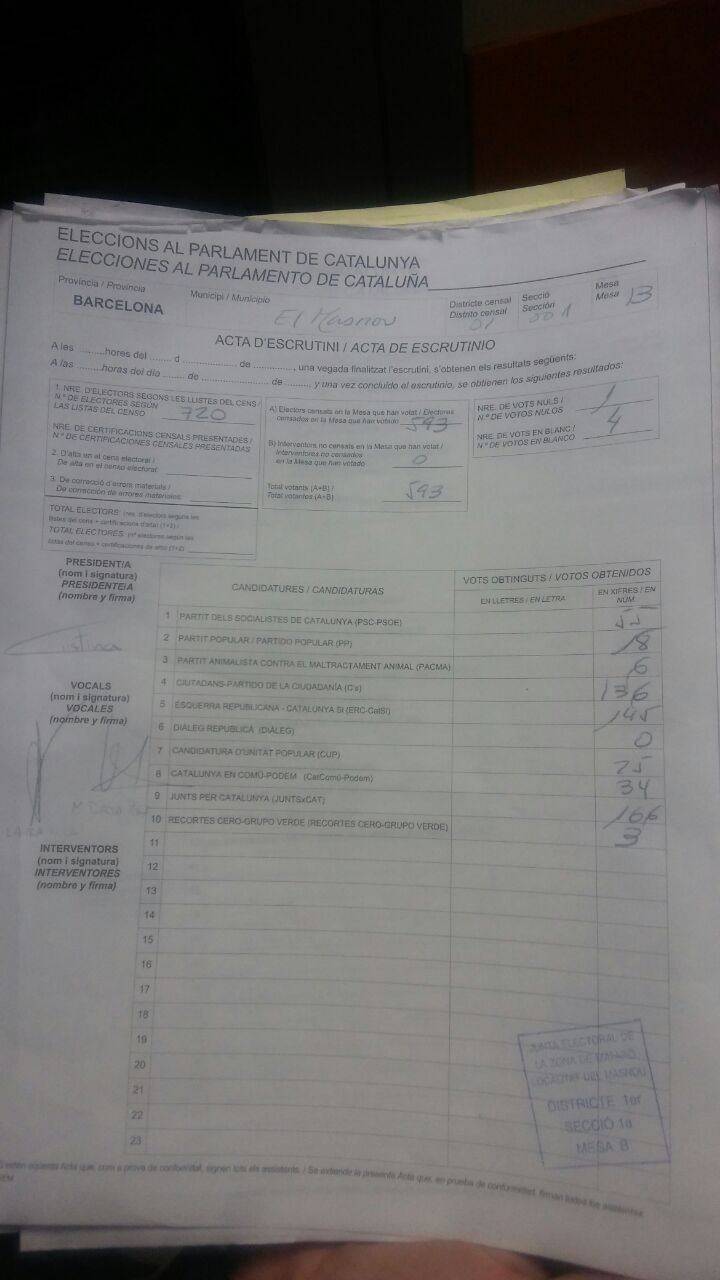 ELECCIONS AL PARLAMENT DE CATALUNYA
ELECCIONES AL PARLAMENTO DE CATALUÑA
Província / Provincia
BARCELONA
Municipi / Municipio
El Masnou
Districte censal
Distrito censal
01
Secció
Sección
001
Mesa
Mesa
B
ACTA D'ESCRUTINI / ACTA DE ESCRUTINIO
A les ......... hores del ...... d .................. de ............, una vegada finalitzat l'escrutini, s'obtenen els resultats següents:
A las ......... horas del día ...... de .................. de ......... y una vez concluido el escrutinio, se obtienen los siguientes resultados:
1. NRE. D'ELECTORS SEGONS LES LLISTES DEL CENS /
N.º DE ELECTORES SEGÚN
LAS LISTAS DEL CENSO
720
NRE. DE CERTIFICACIONS CENSALS PRESENTADES /
N.º DE CERTIFICACIONES CENSALES PRESENTADAS
2. D'alta en el cens electoral /
De alta en el censo electoral:
3. De correcció d'errors materials /
De corrección de errores materiales:
TOTAL ELECTORS: (nre. d'electors segons les
llistes del cens + certificacions d'alta) (1+2) /
TOTAL ELECTORES: (nº electores según las
listas del censo + certificaciones de alta) (1+2)
A) Electors censats en la Mesa que han votat / Electores
censados en la Mesa que han votado
593
B) Interventors no censats en la Mesa que han votat /
Interventores no censados
en la Mesa que han votado
0
Total votants (A+B) /
Total votantes (A+B)
593
NRE. DE VOTS NULS /
N.º DE VOTOS NULOS
1
NRE. DE VOTS EN BLANC /
N.º DE VOTOS EN BLANCO
4
PRESIDENT/A
(nom i signatura)
PRESIDENTE/A
(nombre y firma)
Cristina
VOCALS
(nom i signatura)
VOCALES
(nombre y firma)
INTERVENTORS
(nom i signatura)
INTERVENTORES
(nombre y firma)
CANDIDATURES / CANDIDATURAS
VOTS OBTINGUTS / VOTOS OBTENIDOS
EN LLETRES / EN LETRA
EN XIFRES / EN NÚM.
1 PARTIT DELS SOCIALISTES DE CATALUNYA (PSC-PSOE) 55
2 PARTIT POPULAR / PARTIDO POPULAR (PP) 18
3 PARTIT ANIMALISTA CONTRA EL MALTRACTAMENT ANIMAL (PACMA) 6
4 CIUTADANS-PARTIDO DE LA CIUDADANÍA (C's) 136
5 ESQUERRA REPUBLICANA - CATALUNYA SÍ (ERC-CatSí) 145
6 DIÀLEG REPUBLICÀ (DIÀLEG) 0
7 CANDIDATURA D'UNITAT POPULAR (CUP) 25
8 CATALUNYA EN COMÚ-PODEM (CatComú-Podem) 34
9 JUNTS PER CATALUNYA (JUNTSxCAT) 166
10 RECORTES CERO-GRUPO VERDE (RECORTES CERO-GRUPO VERDE) 3
11
12
13
14
15
16
17
18
19
20
21
22
23
JUNTA ELECTORAL DE
LA ZONA DE MATARÓ
LOCALITAT DEL MASNOU
DISTRICTE 1er
SECCIÓ 1a
MESA B
estén aquesta Acta que, com a prova de conformitat, signen tots els assistents. / Se extiende la presente Acta que, en prueba de conformidad, firman todos los asistentes.